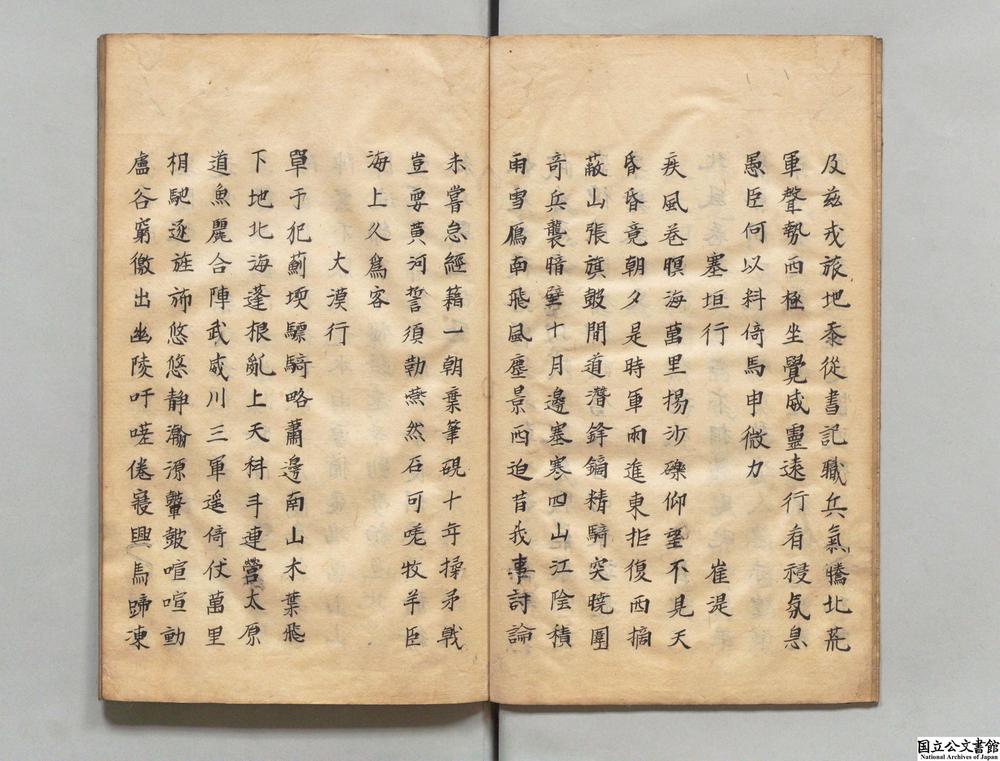 及茲戎旅地忝從書記職兵氣騰北荒
軍聲勢西極坐覺威靈遠行看祲氛息
愚臣何以料倚馬申微力
塞垣行 崔湜
疾風卷暝海萬里揚沙礫仰望不見天
昏昏竟朝夕是時軍兩進東拒復西摘
蔽山張旗皷間道潛鋒鏑精騎突曉圍
奇兵襲暗壁十月邊塞寒四山江陰積
雨雪鴈南飛風塵景西迫昔我事討論
未嘗怠經籍一朝棄筆硯十年操矛戟
豈要黄河誓須勒燕然石可嗟牧羊臣
海上久爲客
大漠行
單于犯薊壖驃騎略蕭邊南山木葉飛
下地北海蓬根亂上天科斗連營太原
道魚麗合陣武威川三軍遥倚伏萬里
相馳逐旌斾悠悠静瀚源鼙皷喧喧動
盧谷窮徼出幽陵吁嗟倦寢興馬蹄凍
国立公文書館
National Archives of Japan